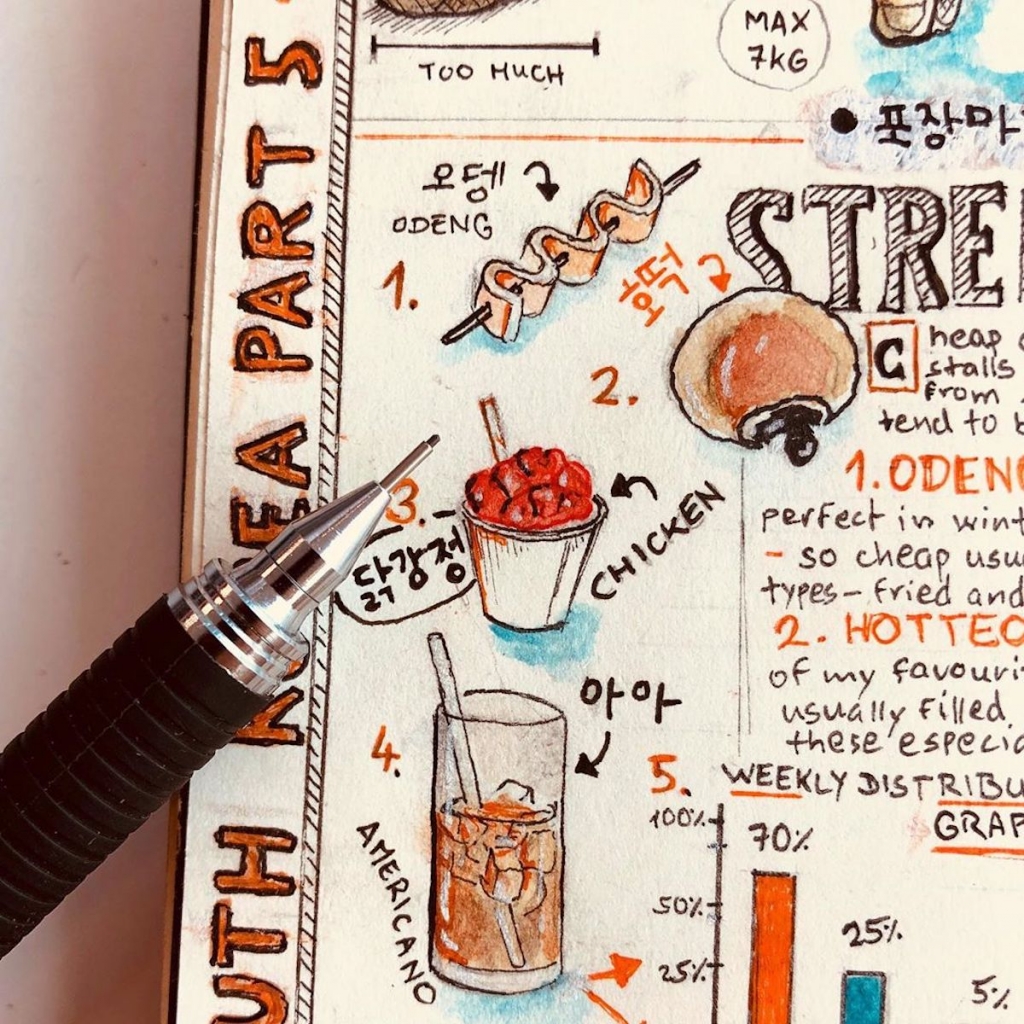 SOUTH KOREA PART 5
TOO MUCH
MAX
7KG
• 포장마
STRE
오뎅
ODENG
1.
호떡
2.
Cheap
stalls
from
tend to b
3.
닭강정
CHICKEN
1. ODENG
perfect in wint
- so cheap usu
types - fried and
2. HOTTEO
of my favouri
usually filled,
these especia
아아
4.
AMERICANO
5. WEEKLY DISTRIBU
GRAP
100%
50%
25%
70%
25%
5%